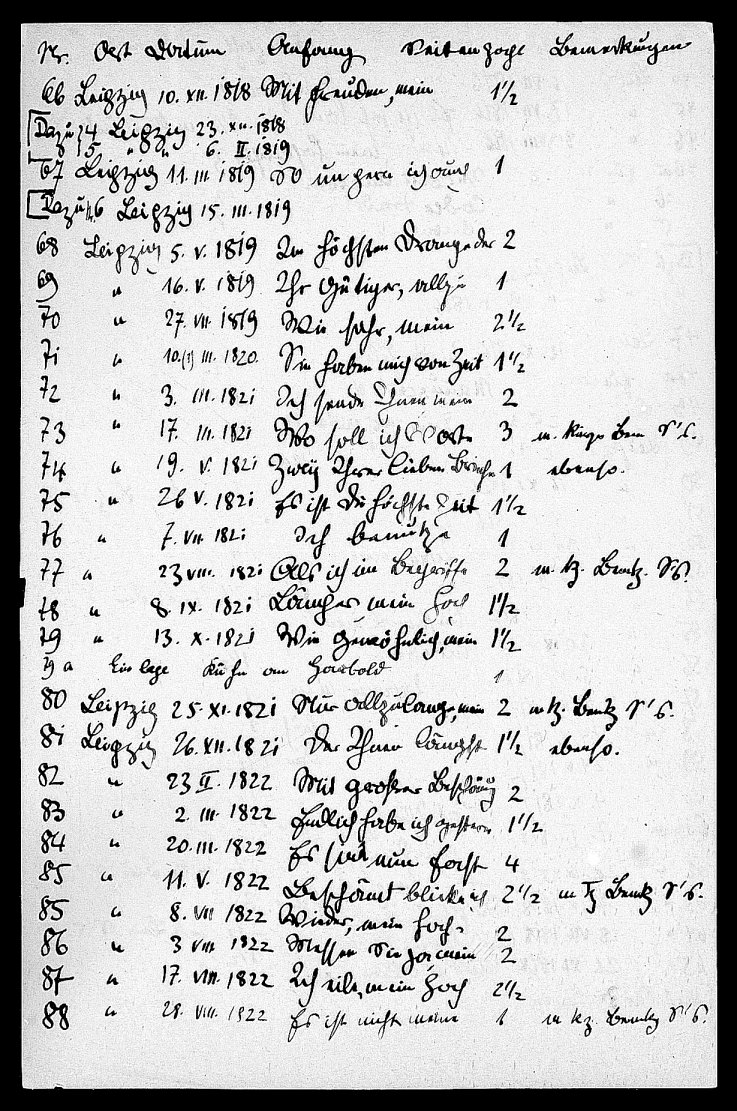 Nr. Ort Datum Anfang Seitenzahl Bemerkungen
66 Leipzig 10. XII. 1818 Mit Freuden, mein 1½
Dazu 14 Leipzig 23. XII. 1818
15 " " 6. II. 1819
67 Leipzig 11. III 1819 So ungern ich auch 1
Dazu 16 Leipzig 15. III. 1819
68 Leipzig 5. V. 1819 Im höchsten Drange der 2
69 " 16. V. 1819 Ihr gütiger, allzu 1
70 " 27. VII 1819 Wie sehr, mein 2½
71 " 10.(?) III. 1820 Sie haben mich von Zeit 1½
72 " 3. III. 1821 Ich sende Ihnen mein 2
73 " 17. III. 1821 Wo soll ich Worte 3 m. kurze Bem S's.
74 " 19. V. 1821 Zwey Ihrer lieben Briefe 1 ebenso.
75 " 26 V. 1821 Es ist die höchste Zeit 1½
76 " 7. VII. 1821 Ich benutze 1
77 " 23 VIII. 1821 Als ich im Begriffe 2 m. kz. Bemkg. S's.
78 " 8. IX. 1821 Länger mein Hoch 1½
79 " 13. X. 1821 Wie gewöhnlich, mein 1½
79 a Einlage Kuhn an 1
80 Leipzig 25. XI. 1821 Nur allzulange, mein 2 m kz. Bemkg S's.
81 Leipzig 26. XII. 1821 Der Ihnen längst 1½ ebenso.
82 " 23 II. 1822 Mit großer Beschämg 2
83 " 2. III. 1822 Endlich habe ich gestern 1½
84 " 20. III. 1822 Es sind nun fast 4
85 " 11. V. 1822 Beschämt blicke ich 2½ m kz Bemkg S's.
85 " 8. VII 1822 Wieder, mein Hoch- 2
86 " 3 VIII 1822 Messen Sie ja, mein 2
87 " 17. VIII. 1822 Ich eile, mein Hoch 2½
88 " 28. VIII. 1822 Es ist nicht meine 1 m kz. Bemkg S's.